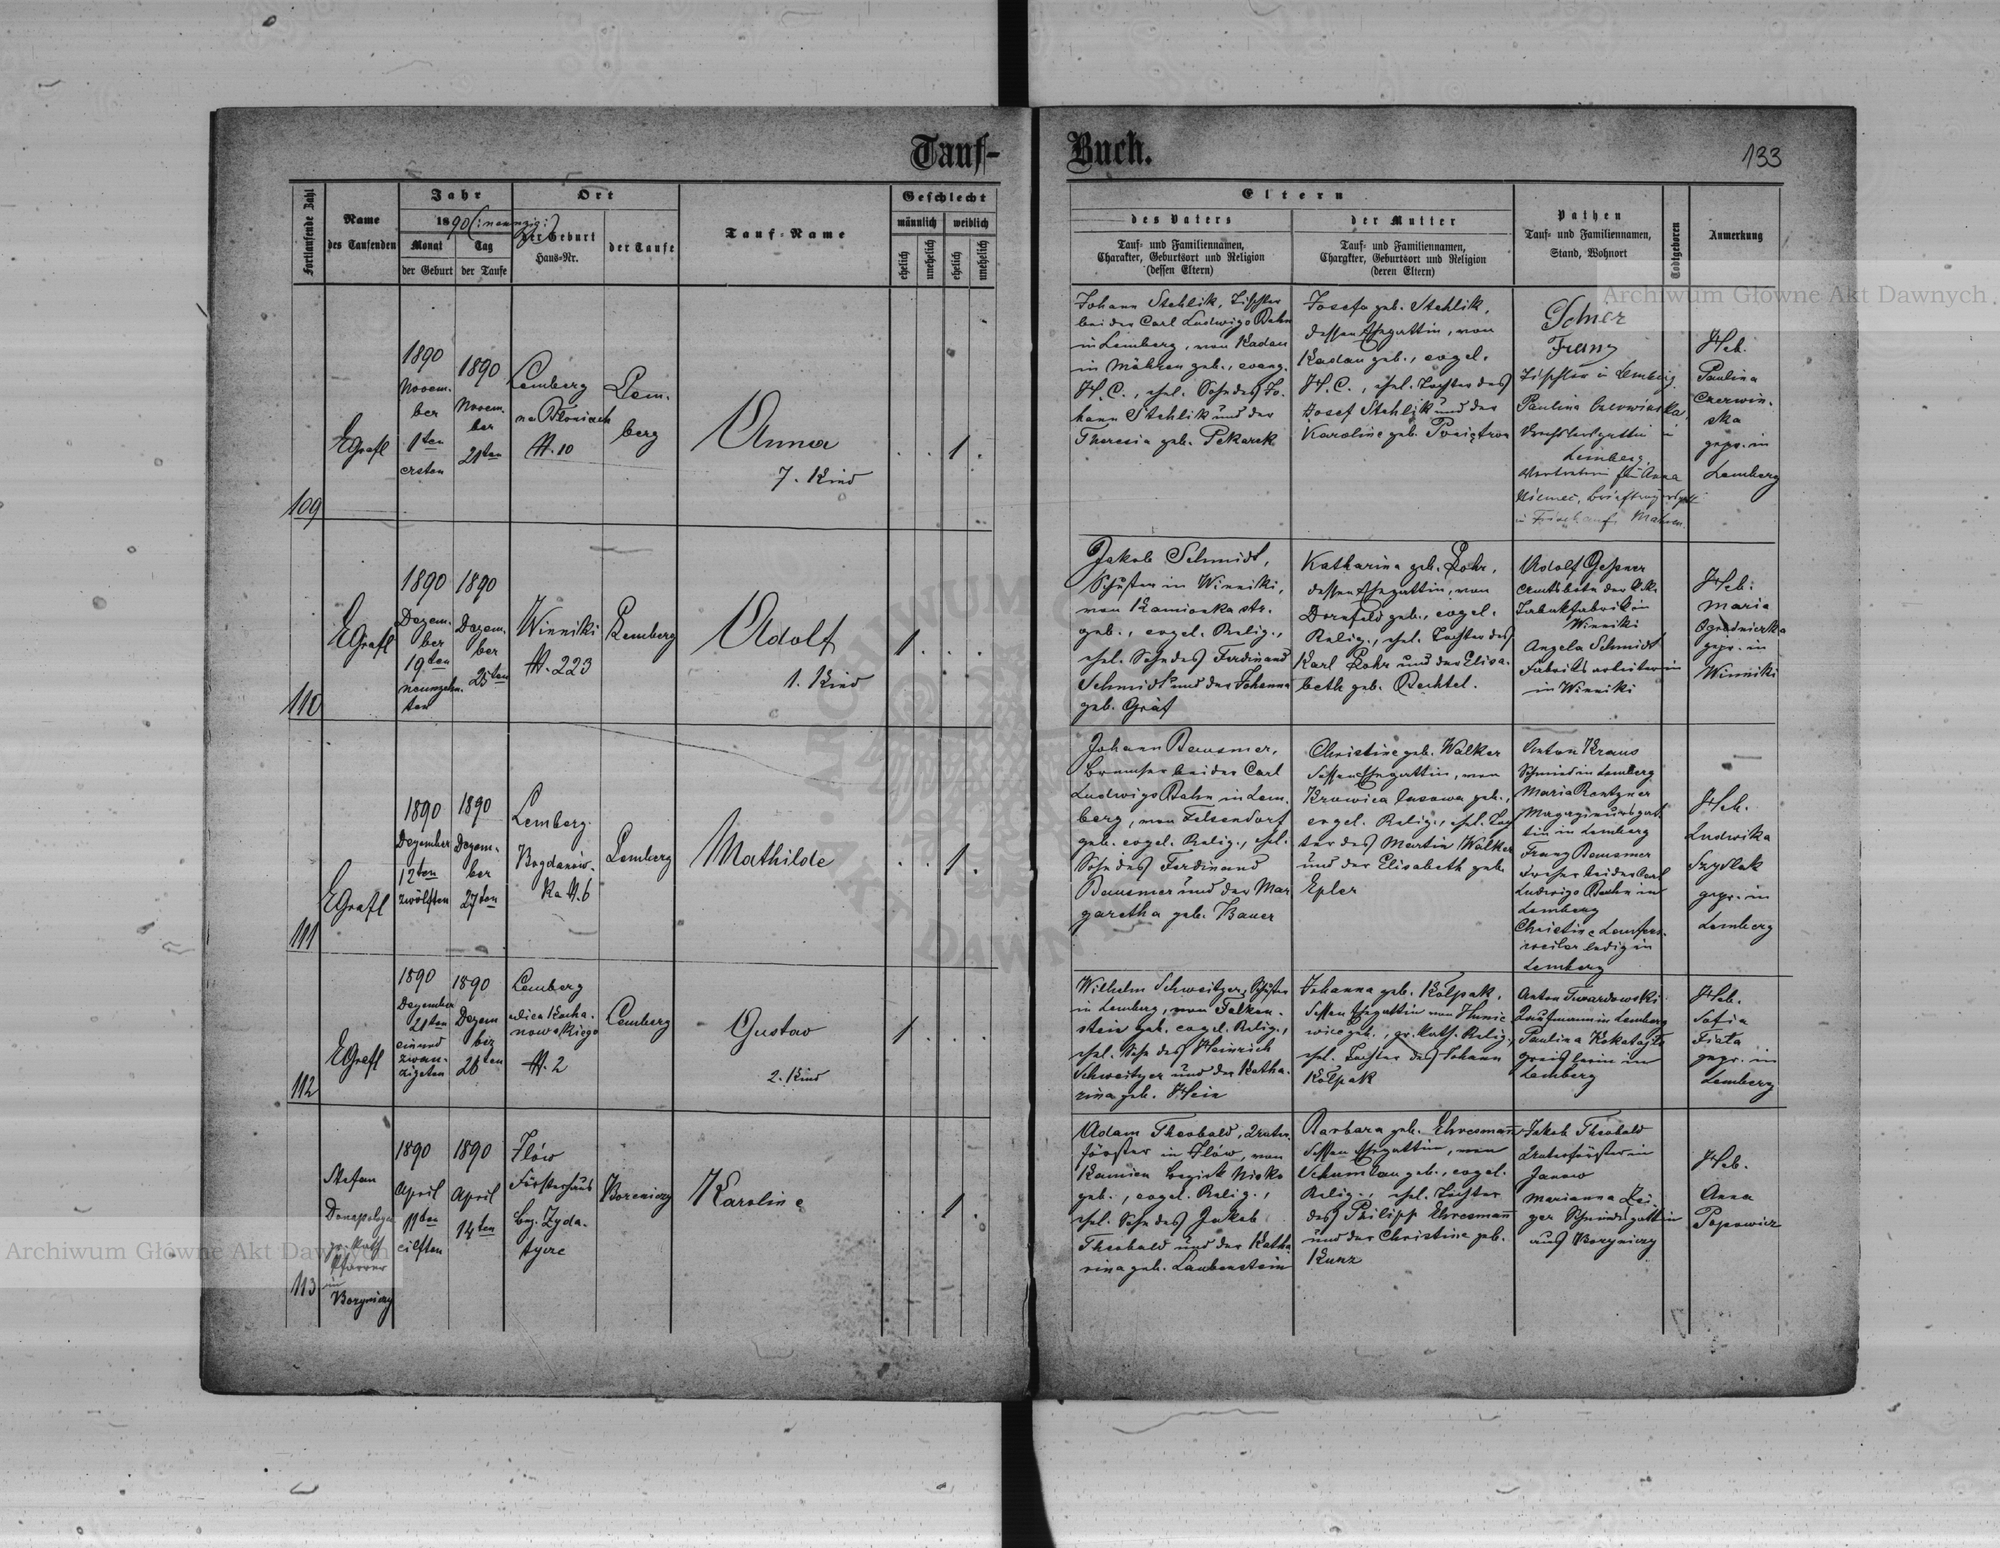 Tauf-
Buch.
133
Fortlaufende Zahl
Name
des Taufenden
Jahr
1890 (: neunzig :)
Monat
der Geburt
Tag
der Taufe
Ort
der Geburt
Haus-Nr.
der Taufe
Tauf-Name
Geschlecht
männlich
weiblich
ehelich
unehelich
ehelich
unehelich
Eltern
des Vaters
Tauf- und Familiennamen,
Charakter, Geburtsort und Religion
(dessen Eltern)
der Mutter
Tauf- und Familiennamen,
Charakter, Geburtsort und Religion
(deren Eltern)
Pathen
Tauf- und Familiennamen,
Stand, Wohnort
Todtgeboren
Anmerkung
109
EGrafl
1890
Novem-
ber
1ten
ersten
1890
Novem-
ber
21ten
Lemberg
na Błoniach
N. 10
Lem-
berg
Anna
7. Kind
1
Johann Stehlik, Tischler
bei der Carl Ludwigs Bahn
in Lemberg, von Kadau
in Mähren geb., evang.
H. C., ehel. Sohn des Jo-
hann Stehlik und der
Theresia geb. Pekarek
Josefa geb. Stehlik,
dessen Ehegattin, von
Kadau geb., evgel.
H. C., ehel. Tochter des
Josef Stehlik und der
Karoline geb.
Franz
Tischler in Lemberg
Paulina Czerwinska,
in
Lemberg
für Anna
in
Heb.
Paulina
Czerwin-
ska
gepr. in
Lemberg
110
EGrafl
1890
Dezem-
ber
19ten
neunzehn-
ten
1890
Dezem-
ber
25ten
Winniki
N. 223
Lemberg
Adolf
1. Kind
1
Jakob Schmidt,
Schuster in Winniki,
von Kamionka str.
geb., evgel. Relig.,
ehel. Sohn des Ferdinand
Schmidt und der Johanna
geb. Gräf
Katharina geb. Rohr,
dessen Ehegattin, von
Dornfeld geb., evgel.
Relig., ehel. Tochter des
Karl Rohr und der Elisa-
beth geb. Bechtel.
Adolf Gessner
Amtsbote der k.k.
Tabakfabrik in
Winniki
Angela Schmidt
Fabriksarbeiterin
in Winniki
Heb:
Maria
Ogrodnicka
gepr. in
Winniki
111
EGrafl
1890
Dezember
12ten
zwölften
1890
Dezem-
ber
27ten
Lemberg
Bogdanów-
ka N. 6
Lemberg
Mathilde
1
Johann Bausmer,
Bremser bei der Carl
Ludwigs Bahn in Lem-
berg, von Felsendorf
geb. evgel. Relig., ehel.
Sohn des Ferdinand
Bausmer und der Mar-
garetha geb. Bauer
Christine geb. Walker
dessen Ehegattin, von
geb.,
evgel. Relig., ehel. Toch-
ter des Martin Walker
und der Elisabeth geb.
Epler
Anton Kraus
Schmied in Lemberg
Maria Rentzner
Magazineursgat-
tin in Lemberg
Franz Bausmer
bei der Carl
Ludwigs Bahn in
Lemberg
Christine
ledig in
Lemberg
Heb.
Ludwika
Szydlak
gepr. in
Lemberg
112
EGrafl
1890
Dezember
21ten
einund
zwan-
zigsten
1890
Dezem
ber
26ten
Lemberg
ulica Kocha-
nowskiego
N. 2
Lemberg
Gustav
2. Kind
1
Wilhelm Schweitzer, Schuster
in Lemberg, von Falken-
stein geb. evgel. Relig.,
ehel. Sohn des Heinrich
Schweitzer und der Katha-
rina geb. Hein
Johanna geb. Kółpak,
dessen Ehegattin von Hunie
wice geb., gr. kath. Relig.,
ehel. Tochter des Johann
Kółpak
Anton Twardowski
Kaufmann in Lemberg
Paulina
Greislerin in
Lemberg
Heb.
Sofia
Fiała
gepr. in
Lemberg
113
Stefan
gr. kath
Pfarrer
in
1890
April
11ten
eilften
1890
April
14ten
Iłów
Försterhaus
Bez. Żyda-
czów
Karoline
1
Adam Theobald, Unter-
förster in Iłów, von
Kamien Bezirk Nisko
geb., evgel. Relig.,
ehel. Sohn des Jakob
Theobald und der Katha-
rina geb. Laubenstein
Barbara geb. Ehresmann
dessen Ehegattin, von
Schumlau geb., evgel.
Relig., ehel. Tochter
des Philipp Ehresmann
und der Christine geb.
Kunz
Jakob Theobald
Unterförster in
Janow
Marianna Zei-
ger Schmidsgattin
aus
Heb.
Anna
Popowicz
Archiwum Główne Akt Dawnych
Archiwum Główne Akt Dawnych